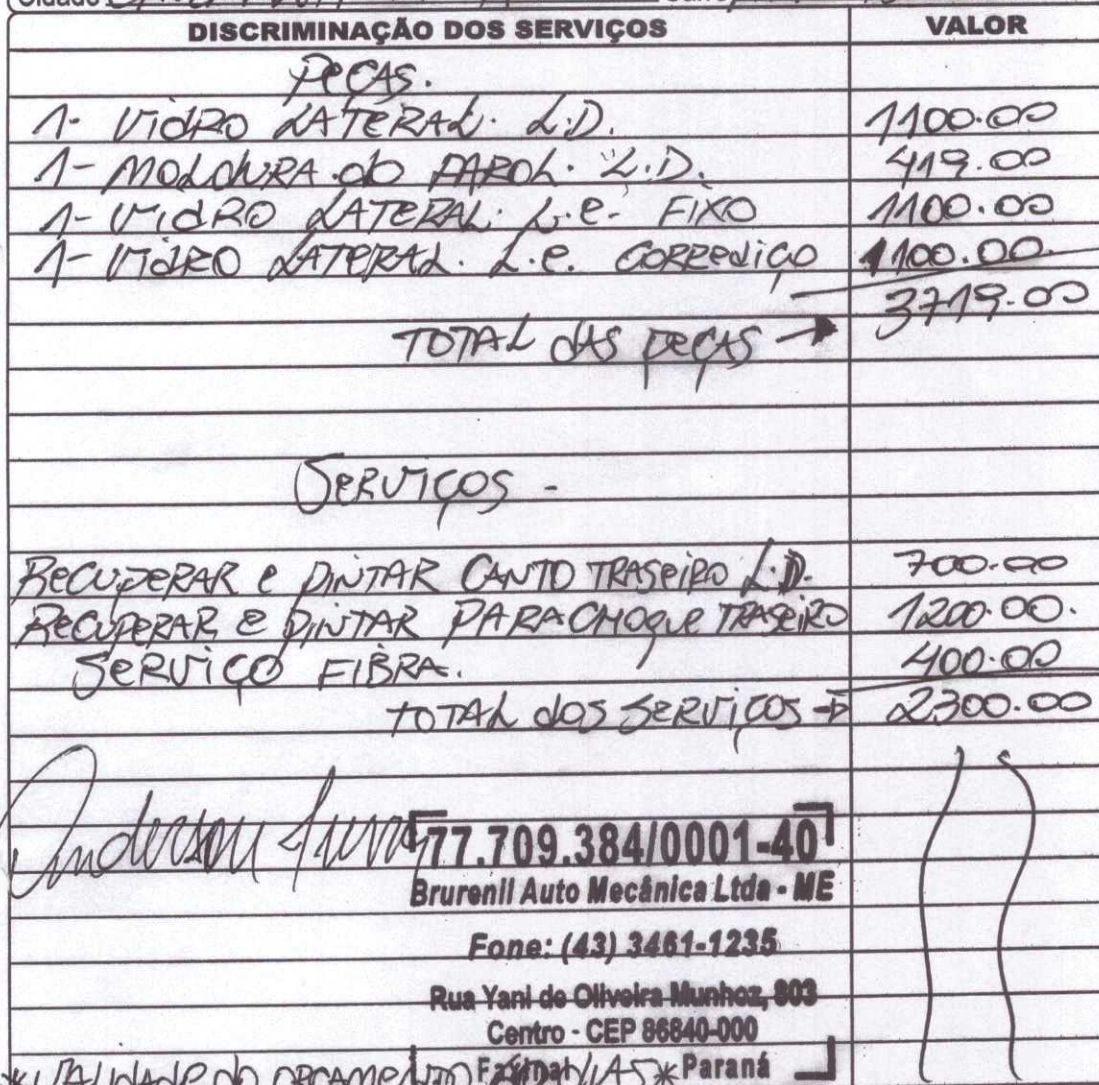 Cidade
DISCRIMINAÇÃO DOS SERVIÇOS VALOR
PeÇAS.
1- VidRO LATERAL. L.D. 1100.00
1- MOLDURA do FAROL. L.D. 419.00
1- VidRO LATERAL. L.e. FIXO 1100.00
1- VidRO LATERAL. L.e. CORRediço 1100.00
3719.00
TOTAL dAS peçAS →
SeRViÇOS -
ReCUPERAR e PiNTAR CANTO TRASeiRO L.D. 700.00
ReCUPERAR e PiNTAR PARACHOque TRASeiRO 1200.00.
SeRViÇO FIBRA. 400.00
TOTAL dos SeRViços → 2300.00
Anderson
77.709.384/0001-40
Brurenil Auto Mecânica Ltda - ME
Fone: (43) 3461-1235
Rua Yani de Oliveira Munhoz, 803
Centro - CEP 86840-000
Faxinal Paraná
* VALIDADe DO ORÇAMeNTO DIAS *